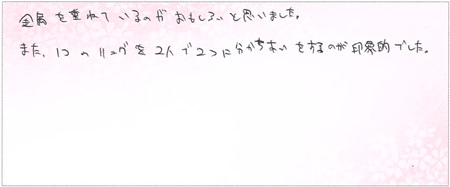 金属を重ねているのがおもしろいと思いました。
また、1つのリングを2人で2つに分かちあいをするのが印象的でした。